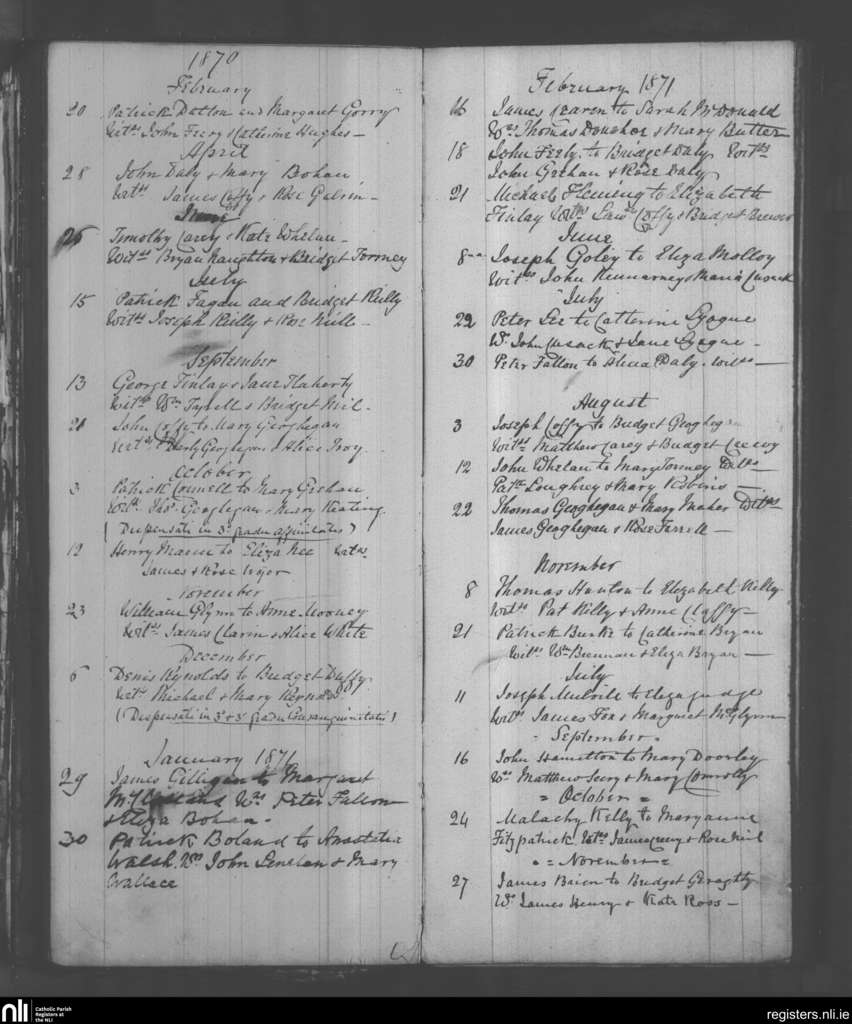 1870
February
20 Patrick Dalton and Margaret Gorry
Witss John Feery & Catherine Hughes —
April
28 John Daly & Mary Bohan
Witss James Coffy & Rose Galvin —
June
26 Timothy Carey & Kate Whelan —
Witss Bryan Naughton & Bridget Tormey
July
15 Patrick Fagan and Bridget Reilly
Witss Joseph Reilly & Rose Neill —
September
13 George Finlay & Jane Flaherty
Witss Wm Tyrell & Bridget Neil —
21 John Coffe to Mary Geoghegan
Geoghegan & Alice Troy
October
3 Patrick Connell to Mary Geehan
Witss Thos Geoghegan & Mary Keating
(Dispensati in 3o gradu affinitatis)
12 Henry Mann to Eliza Nee Witss
James & Rose
November
23 William Glynn to Anne Mooney
Witss James Clavin & Alice White
December
6 Denis Reynolds to Bridget Duffy
Witss Michael & Mary Reynolds
(Dispensati in 3o & 3o gradu Consanguinitatis)
January 1871
29 James Gilligan to Margaret
Ws Peter Fallon
& Eliza Bohan —
30 Patrick Boland to Anastatia
Walsh. Ws John Lenehan & Mary
Wallace
February 1871
16 James Kearin to Sarah McDonald
Ws Thomas Donohoe & Mary Butler
18 John Feely to Bridget Daly Witss
John Geehan & Rose Daly
21 Michael Fleming to Elizabeth
Finlay Witss Lawce Coffy & Bridget Brewer
June
8 Joseph Goley to Eliza Molloy
Witss John Kinnarney & Maria Cusack
July
22 Peter Lee to Catherine Lyogue
Ws John Cusack & Jane Lyogue —
30 Peter Fallon to Alicia Daly. Witss —
August
3 Joseph Coffy to Bridget Geoghegan
Witss Matthew Carey & Bridget Creevy
12 John Whelan to Mary Tormey Witss —
Patk Loughrey & Mary Robins —
22 Thomas Geoghegan & Mary Maher Witss
James Geoghegan & Rose Farrell —
November
8 Thomas Hanlon to Elizabeth Killy
Witss Pat Killy & Anne Claffy —
21 Patrick Burke to Catherine Bryan
Witss Wm Brennan & Eliza Bryan —
July
11 Joseph Mulvile to Eliza Judge
Witss James Fox & Margaret McGlynn
- September -
16 John Hamilton to Mary Doorley
Ws Matthew Seery & Mary Connolly
= October =
24 Malachy Kelly to Maryanne
Fitzpatrick Witss James Creevy & Rose Neil
= November =
27 James Brien to Bridget Geraghty
Ws James Henry & Kate Ross —
nli Catholic Parish
Registers at
the NLI
registers.nli.ie